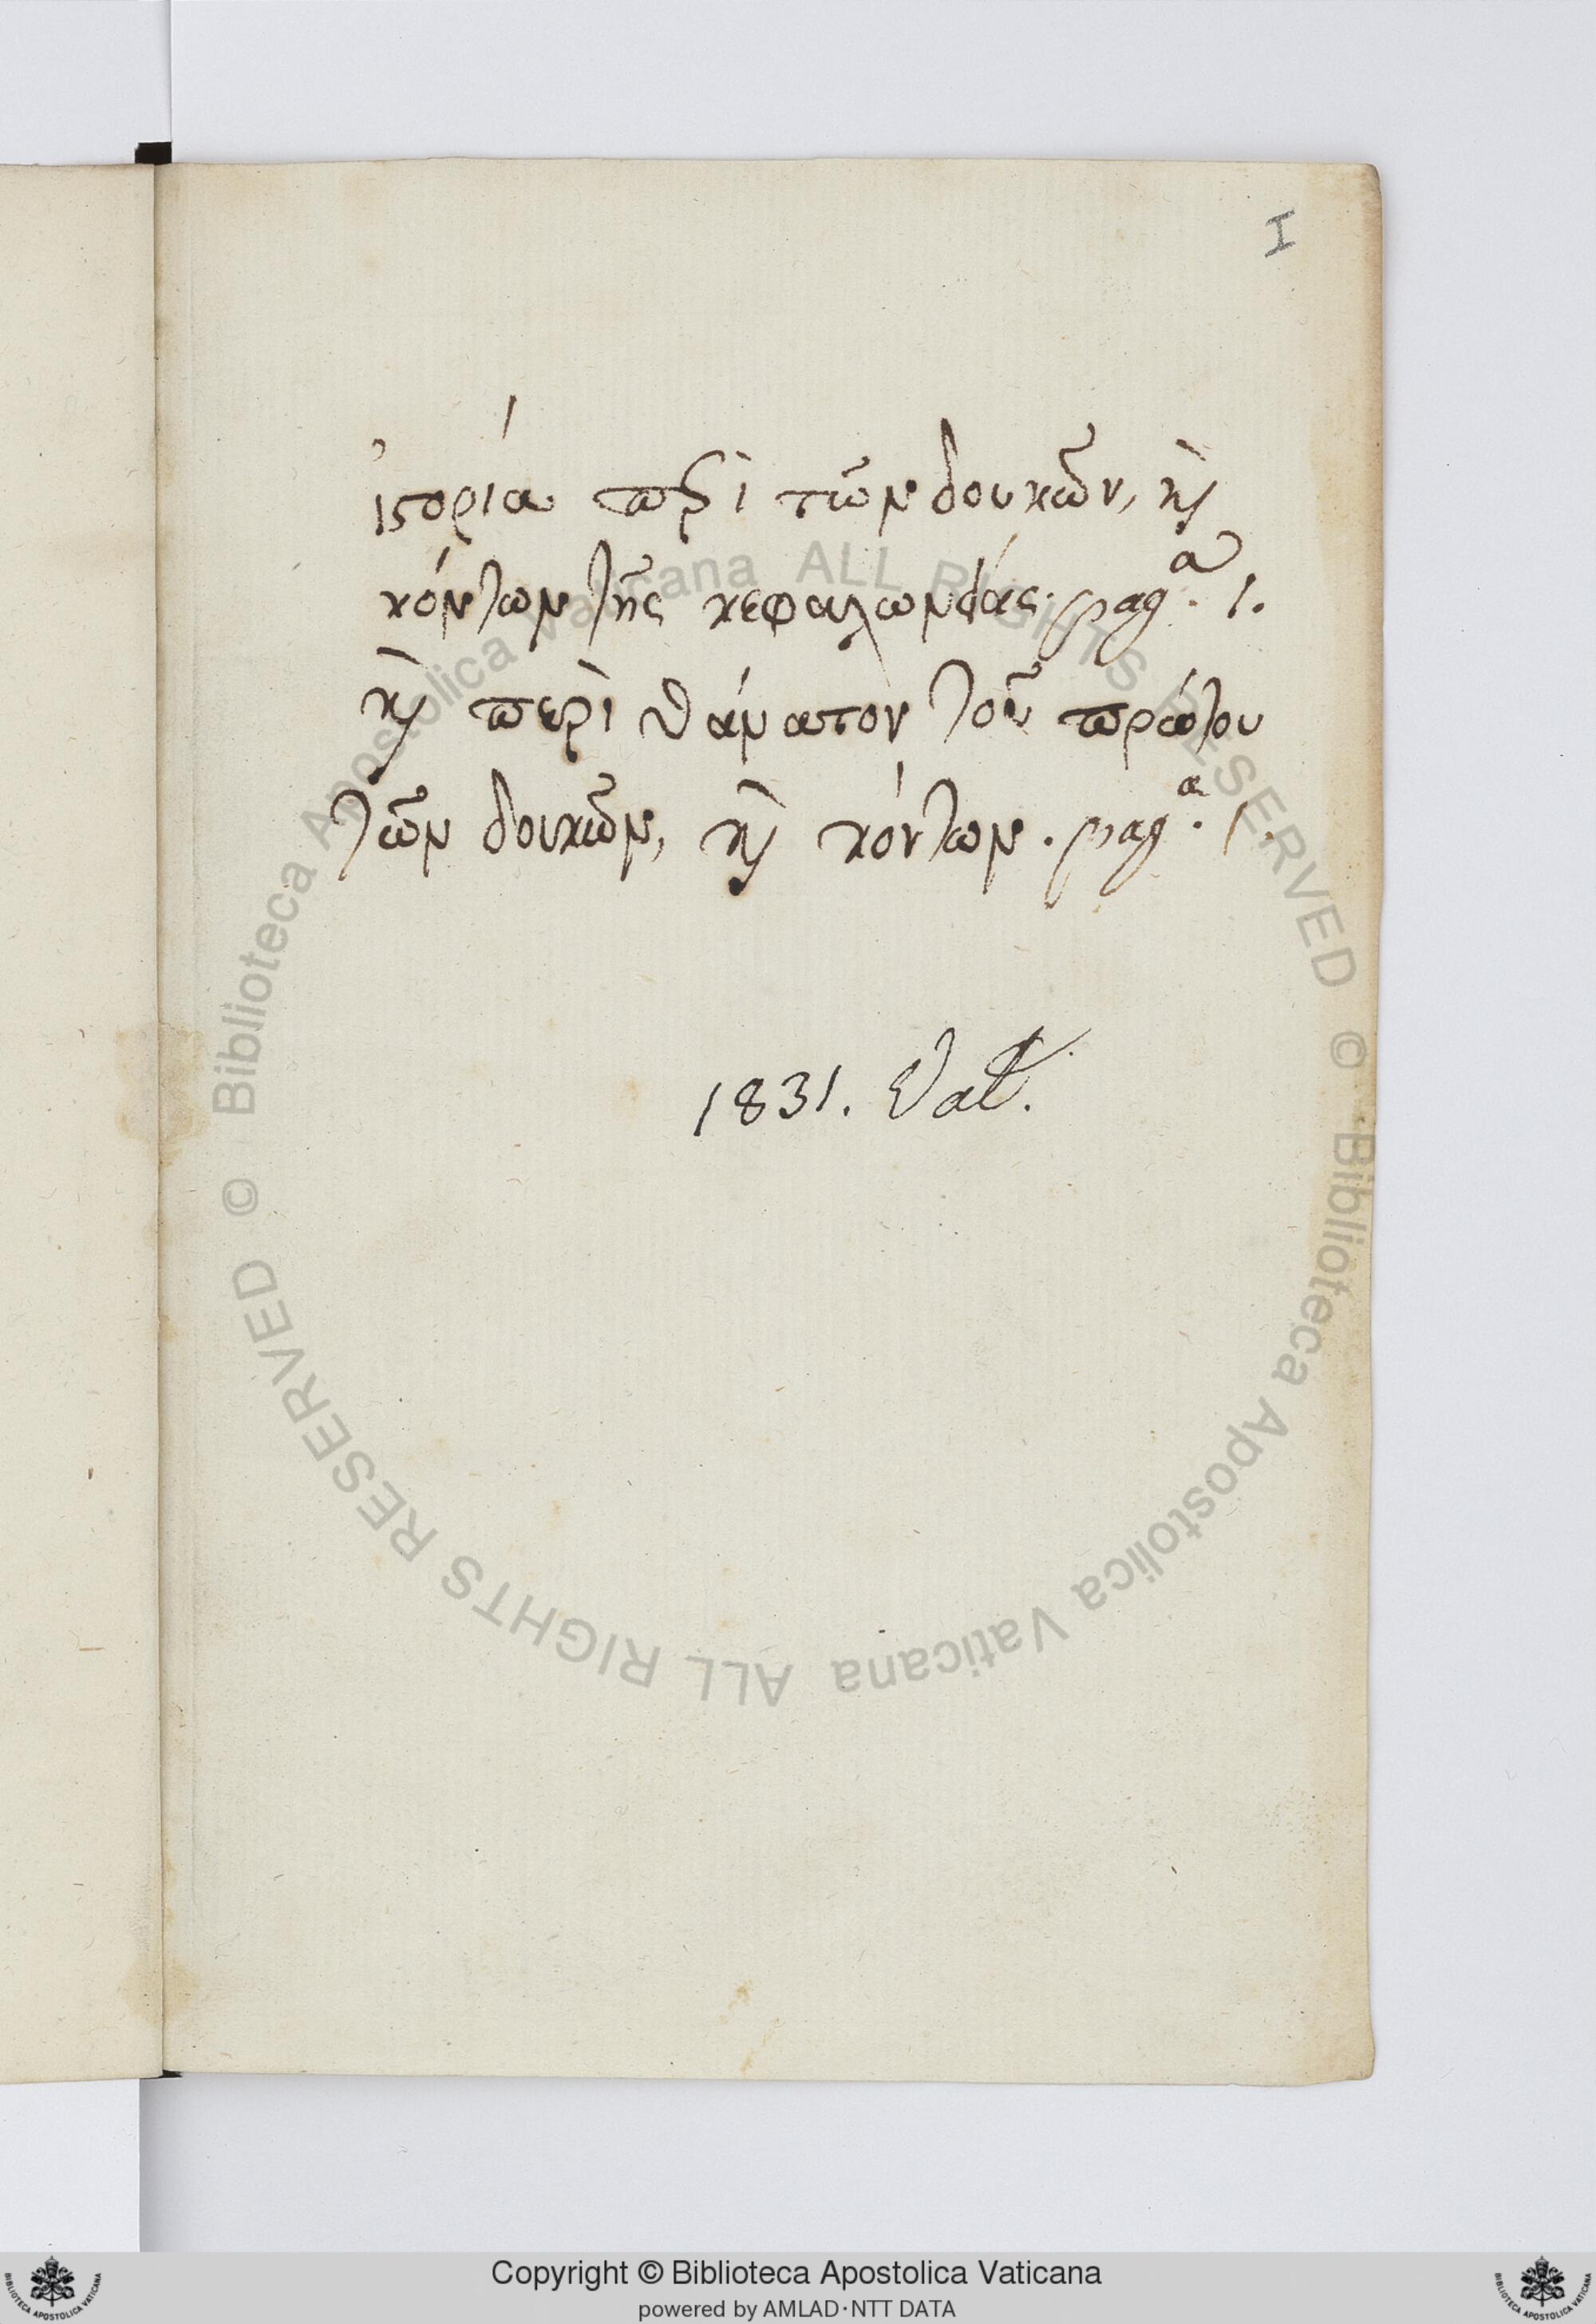 I
ἱστορία περὶ τῶν δουκῶν, κὶ
κόντων τῆς κεφαλωνίας. pagᵃ. 1.
κὶ περὶ θάνατον τοῦ πρώτου
τῶν δουκῶν, κὶ κόντων. pagᵃ. 1.
1831. Vat.
© Biblioteca Apostolica Vaticana ALL RIGHTS RESERVED
© Biblioteca Apostolica Vaticana ALL RIGHTS RESERVED
Copyright © Biblioteca Apostolica Vaticana
powered by AMLAD·NTT DATA
BIBLIOTECA APOSTOLICA VATICANA
BIBLIOTECA APOSTOLICA VATICANA